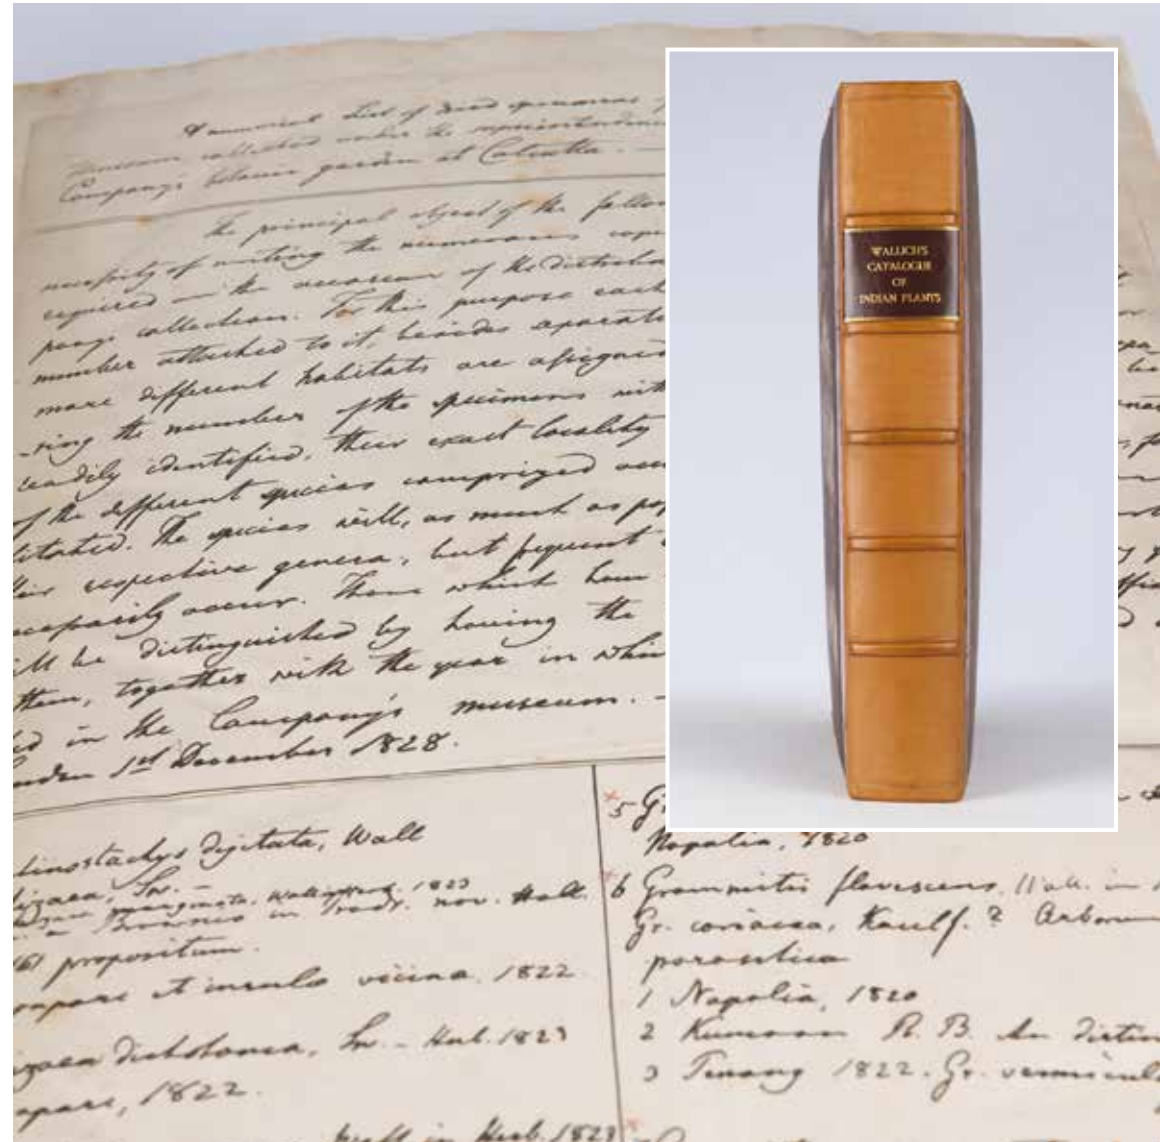 A numerical List of dried specimens of
Museum collected under the superintendence
Company's botanic garden at Calcutta. —
The principal object of the follow
necessity of uniting the numerous
required on the occasion of the distribu
pany's collection. For this purpose each
number attached to it, besides separate
more different habitats are assigned
-ring the number of the specimens with
readily identified, their exact locality
of the different species comprized
The species will, as much as pos
their respective genera, but frequent
necessarily occur. Those which have
will be distinguished by having the
them, together with the year in which
in the Company's museum. —
London 1st December 1828.
digitata, Wall
Sw. —
Wall. 1823
in nov. Holl.
propositum.
et insula vicina, 1822
dichotoma, Sw. – Herb. 1823
1822.
in Herb. 1823
5 G
Napalia, 1820
6 Grammitis flavescens, Wall. in
Gr. coriacea, Kaulf. ? Arborum
parasitica
1 Napalia, 1820
2 Kumaon R. B. An distin
3 Penang 1822. Gr.
WALLICH'S
CATALOGUE
OF
INDIAN PLANTS